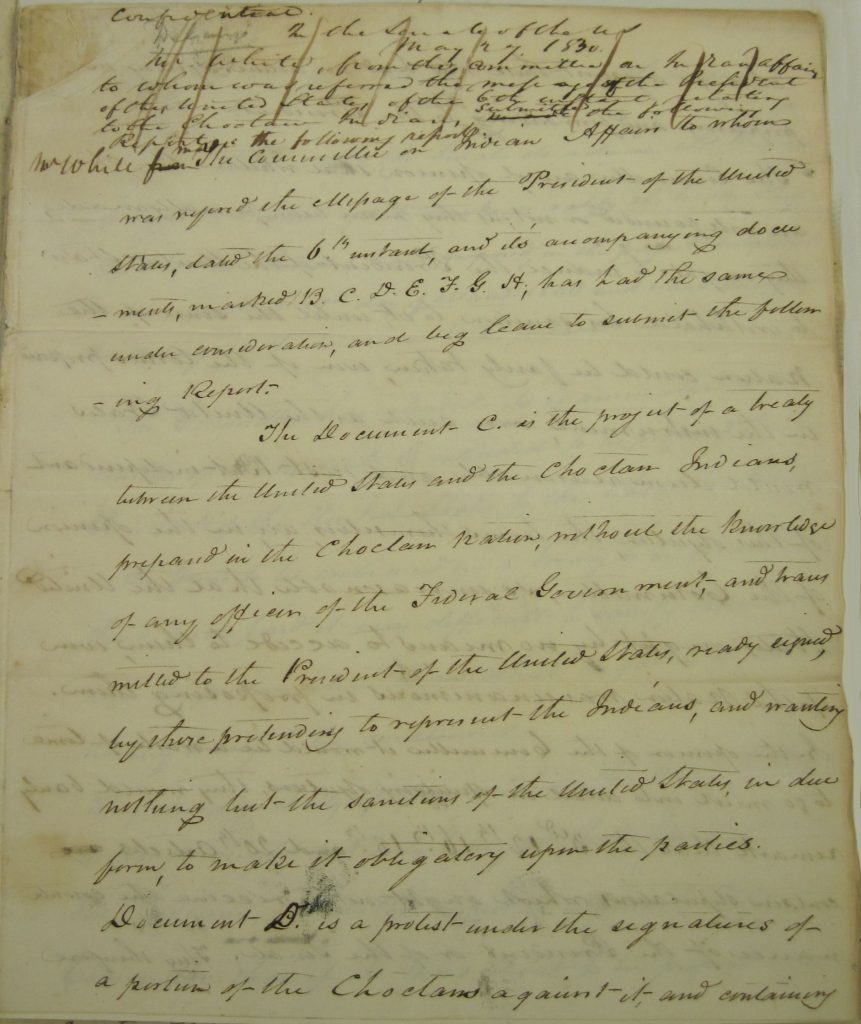 Confidential.
In the Senate of the US
May 27. 1830.
Mr White, from the Committee on Indian affairs
to whom was referred the message of the President
of the United States of the 6th instant relating
to the Choctaw Indians, submitted the following
Report: the following report
Mr White from The Committee on Indian Affairs to whom
was refered the Message of the President of the United
States, dated the 6.th instant, and it's accompanying docu
- ments, marked B. C. D. E. F. G. H, has had the same
under consideration, and beg leave to submit the follow
- ing Report.
The Document C. is the project of a treaty
between the United States and the Choctaw Indians,
prepared in the Choctaw Nation, without the knowledge
of any officer of the Federal Government, and trans
mitted to the President of the United States, ready signed,
by those pretending to represent the Indians, and wanting
nothing but the sanctions of the United States, in due
form, to make it obligatory upon the parties.
Document D. is a protest under the signatures of
a portion of the Choctaws against it, and containing